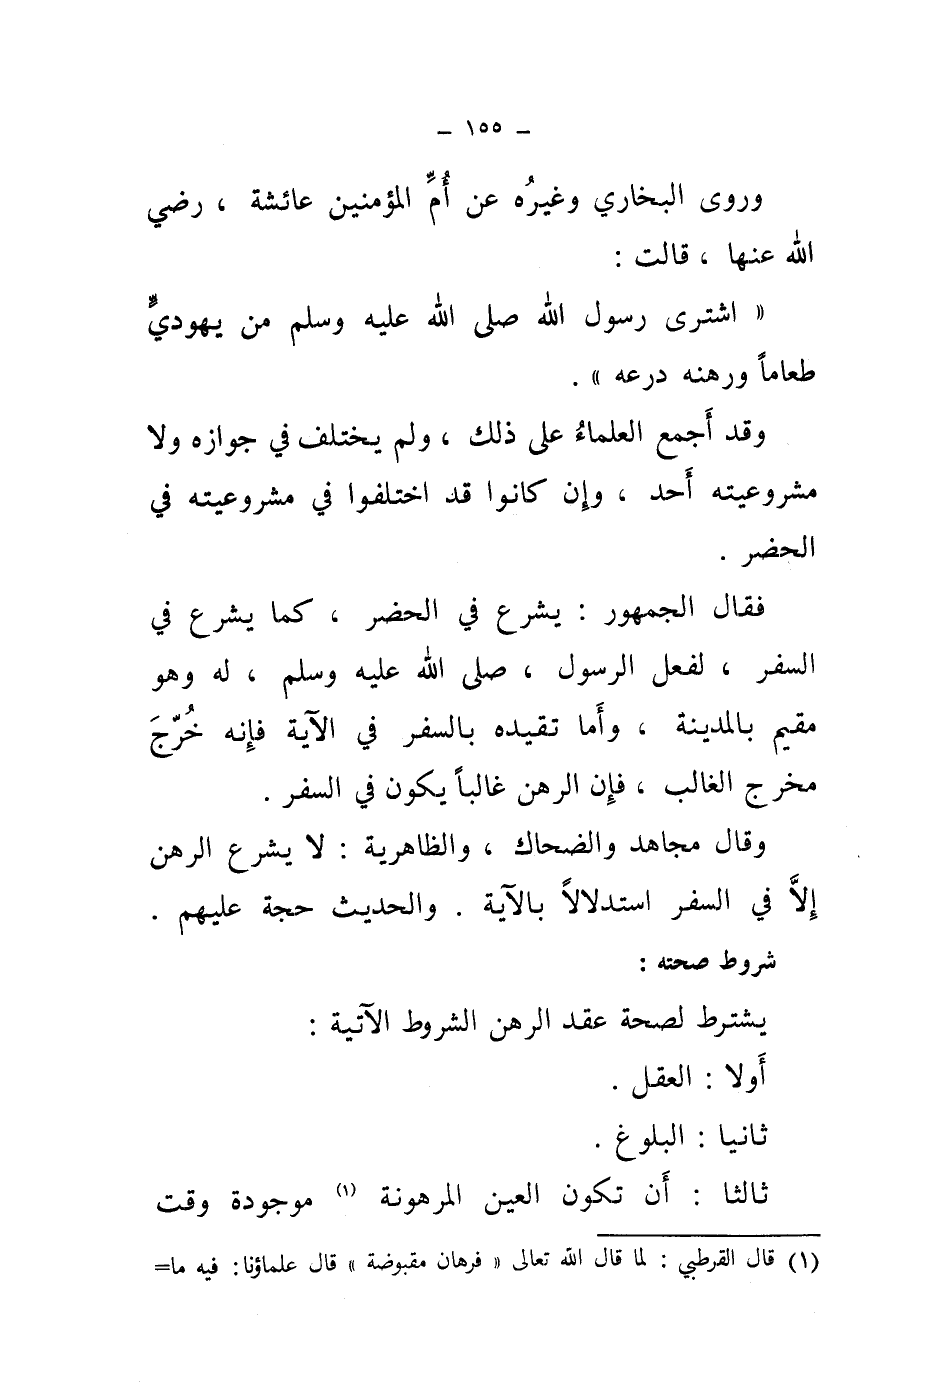 ـ ١٥٥ ـ
وروى البخاري وغيرُه عن أُمِّ المؤمنين عائشة ، رضي
الله عنها ، قالت :
« اشترى رسول الله صلى الله عليه وسلم من يهوديٍّ
طعاماً ورهنه درعه » .
وقد أَجمع العلماءُ على ذلك ، ولم يختلف في جوازه ولا
مشروعيته أَحد ، وإِن كانوا قد اختلفوا في مشروعيته في
الحضر .
فقال الجمهور : يشرع في الحضر ، كما يشرع في
السفر ، لفعل الرسول ، صلى الله عليه وسلم ، له وهو
مقيم بالمدينة ، وأَما تقيده بالسفر في الآية فإِنه خُرِّجَ
مخرج الغالب ، فإِن الرهن غالباً يكون في السفر .
وقال مجاهد والضحاك ، والظاهرية : لا يشرع الرهن
إِلاَّ في السفر استدلالاً بالآية . والحديث حجة عليهم .
شروط صحته :
يشترط لصحة عقد الرهن الشروط الآتية :
أَولا : العقل .
ثانيا : البلوغ .
ثالثا : أَن تكون العين المرهونة (١) موجودة وقت
(١) قال القرطبي : لما قال الله تعالى « فرهان مقبوضة » قال علماؤنا : فيه ما=